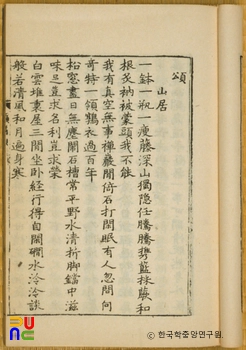 頌
山居
一鉢一瓶一瘦藤深山獨隐任騰騰携藍採蕨和
根煑衲被蒙頭我不能
我有真空無事禪巖間倚石打閑眠有人忽問何
奇特一領鶉衣過百年
松窓盡日無塵閙石槽常平野水清折脚鐺中滋
味足豈求名利豈求榮
白雲堆裏屋三間坐卧経行得自閑磵水泠泠談
般若清風和月遍身寒
한국학중앙연구원